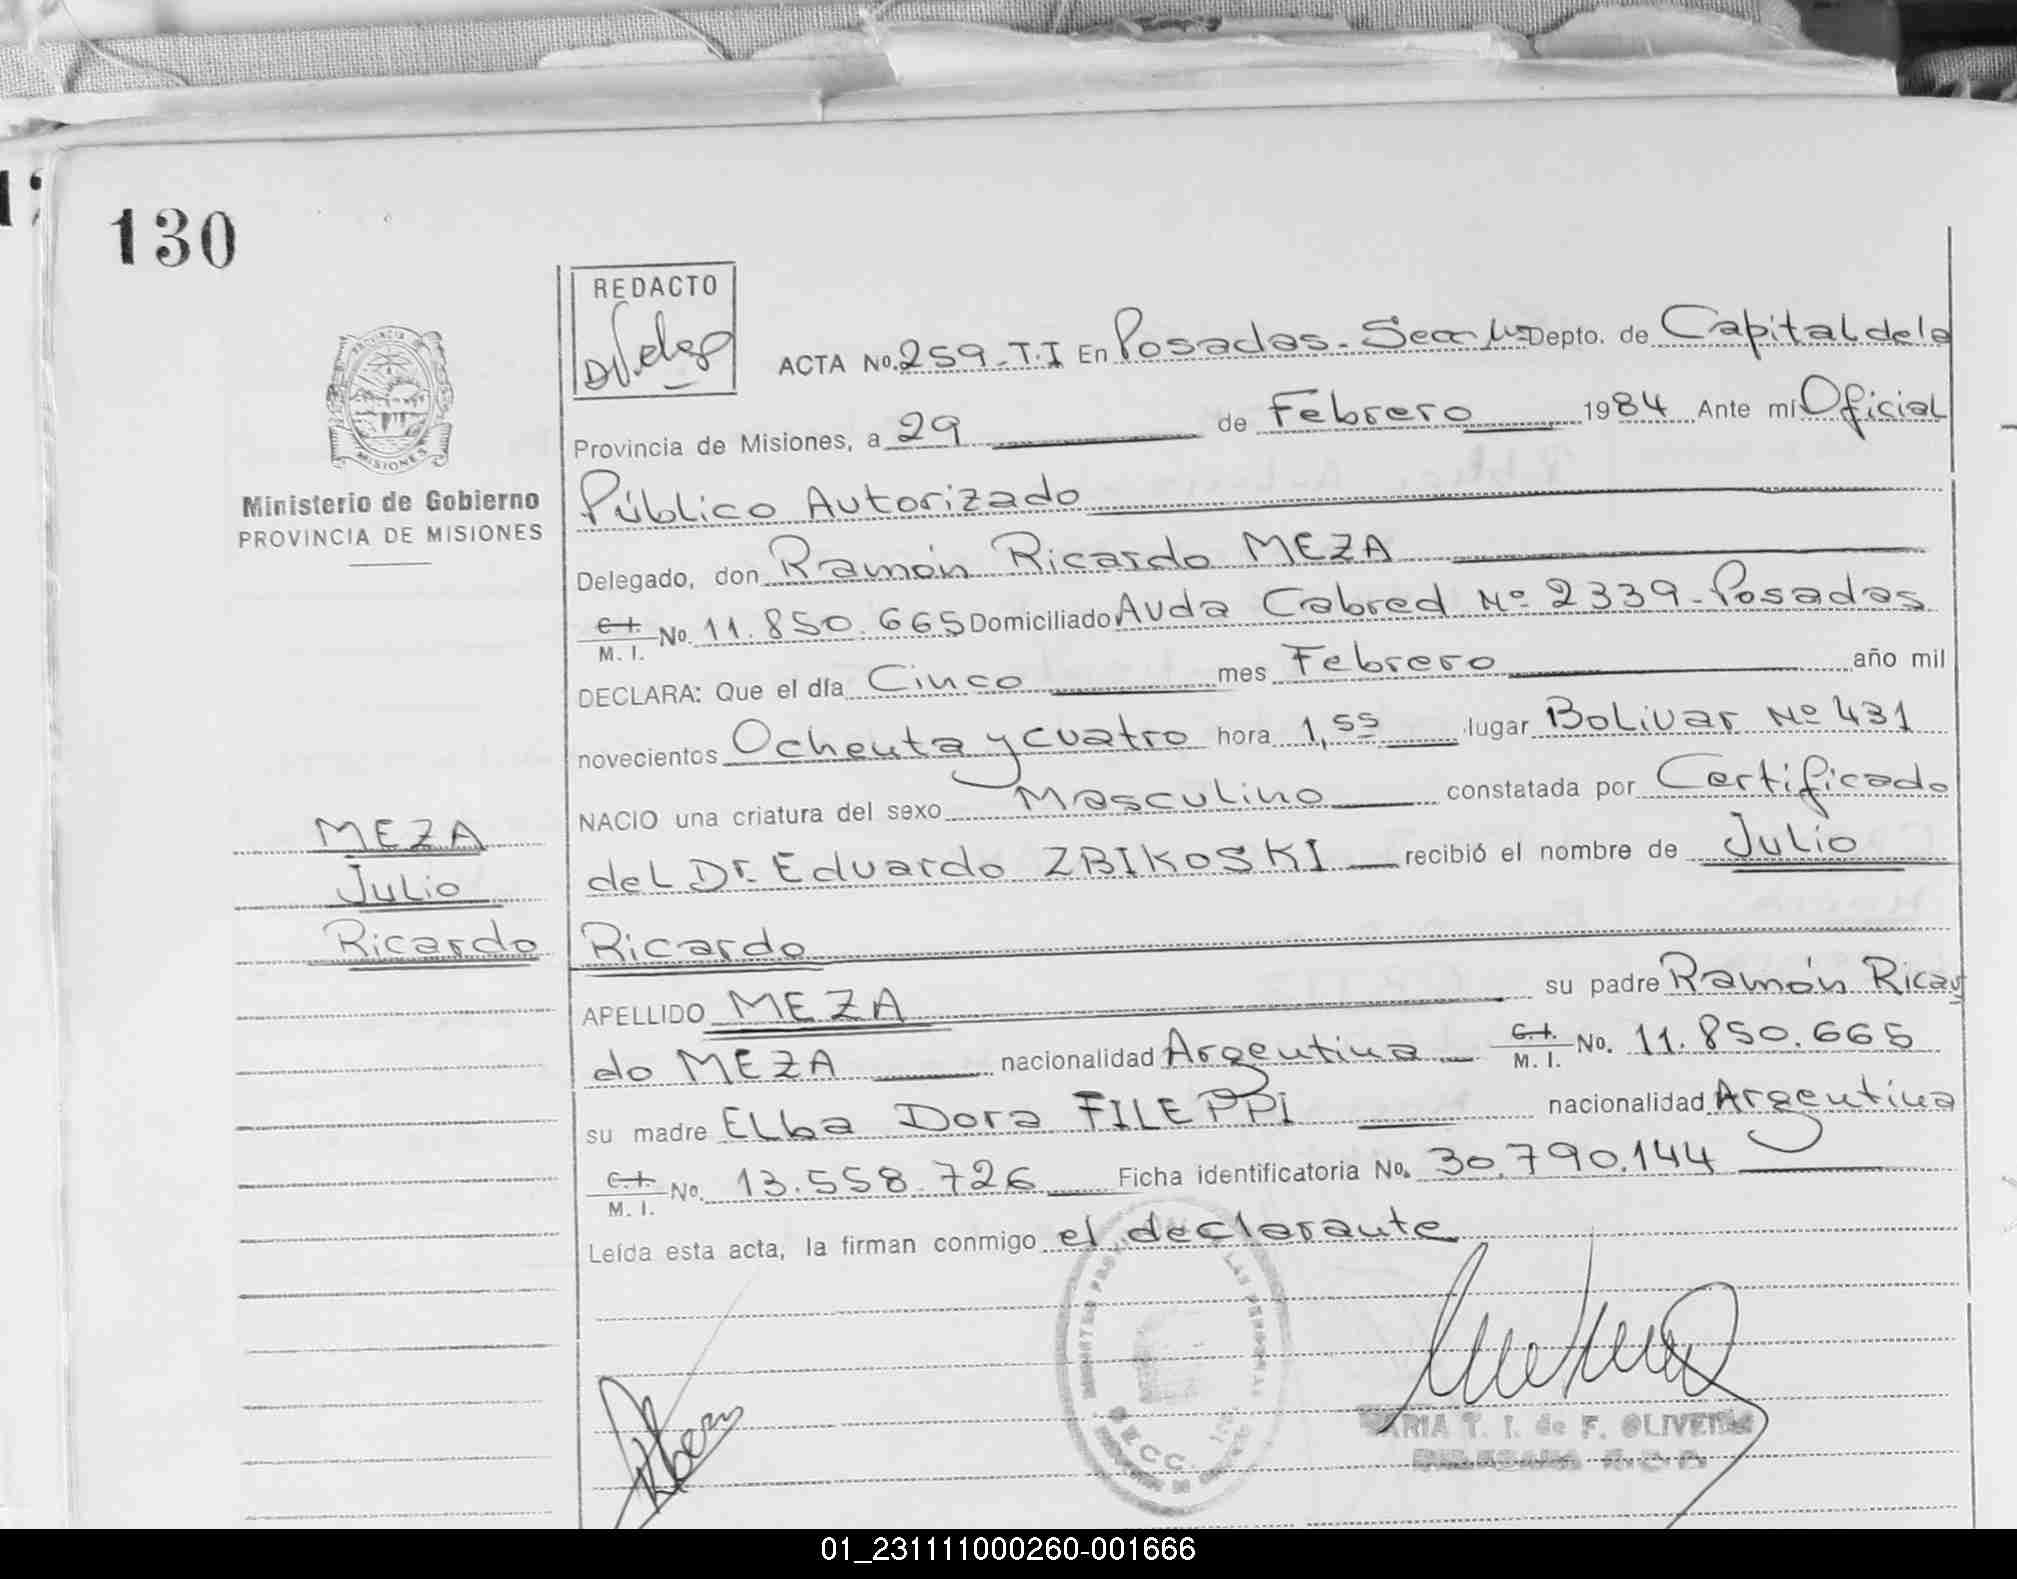 130
REDACTO
ACTA No. 259-T.I En Posadas - Secc 1a Depto. de Capital de la
Provincia de Misiones, a 29 de Febrero 1984 Ante mí Oficial
PROVINCIA DE
MISIONES
Ministerio de Gobierno
PROVINCIA DE MISIONES
Público Autorizado
Delegado, don Ramón Ricardo MEZA
C.I. M. I. No. 11.850.665 Domiciliado Avda Cabred Nº 2339 - Posadas
DECLARA: Que el día Cinco mes Febrero año mil
novecientos Ochenta y cuatro hora 1,55 lugar Bolivar Nº 431
NACIO una criatura del sexo Masculino constatada por Certificado
MEZA
del Dr. Eduardo ZBIKOSKI recibió el nombre de Julio
Julio
Ricardo
Ricardo
APELLIDO MEZA su padre Ramón Ricar
do MEZA nacionalidad Argentina C.I. M. I. No. 11.850.665
su madre Elba Dora FILEPPI nacionalidad Argentina
C.I. M. I. No. 13.558.726 Ficha identificatoria No. 30.790.144
Leída esta acta, la firman conmigo el declarante
LAS PERSONAS
MARIA T. I. de F. OLIVEIRA
DELEGADA R.C.P.
01_231111000260-001666